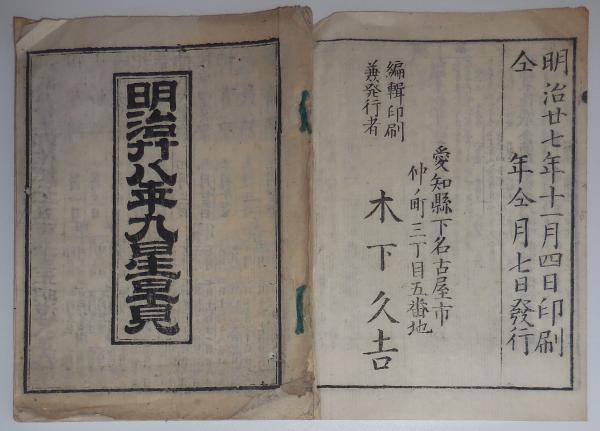 明治廿七年十一月四日印刷
仝年仝月七日發行
編輯印刷
兼発行者
愛知縣下名古屋市
仲ノ町三丁目五番地
木下久吉
明治廿八年九星早見